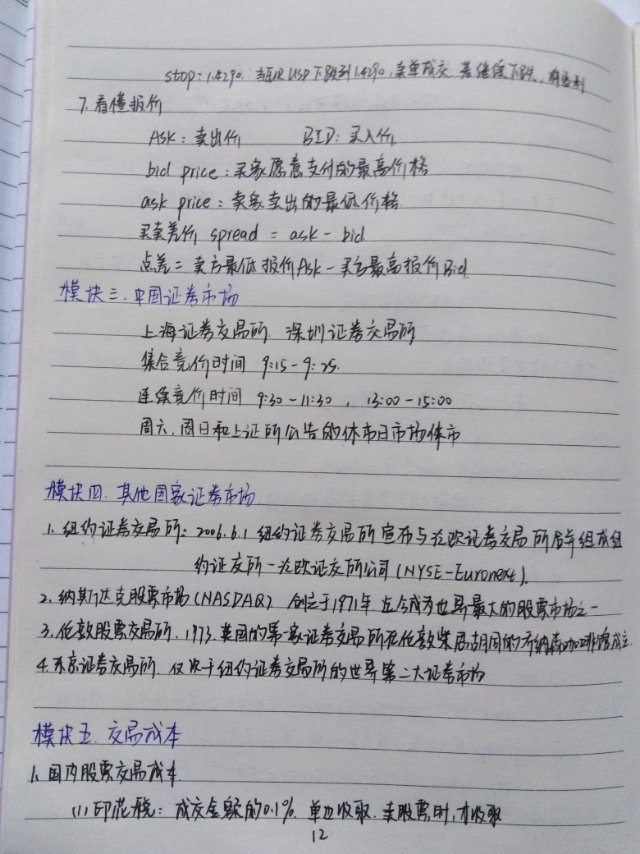 stop: 1.4290. 当EUR USD下跌到1.4290,卖单成交. 若继续下跌,
7.看懂报价
ASK:卖出价 BID:买入价
bid price:买家愿意支付的最高价格
ask price:卖家卖出的最低价格
买卖差价 spread = ask - bid
点差=卖方最低报价Ask-买方最高报价Bid
模块三.中国证券市场
上海证券交易所 深圳证券交易所
集合竞价时间 9:15-9:25.
连续竞价时间 9:30-11:30 , 13:00-15:00
周六,周日和上证所公告的休市日市场休市
模块四.其他国家证券市场
1.纽约证券交易所:2006.6.1 纽约证券交易所宣布与泛欧证券交易所合并组成纽
约证交所-泛欧证交所公司(NYSE-Euronext).
2.纳斯达克股票市场(NASDAQ) 创立于1971年 迄今成为世界最大的股票市场之一
3.伦敦股票交易所.1773.英国的第一家证券交易所在伦敦柴思胡同的乔纳森咖啡馆成立.
4.东京证券交易所.仅次于纽约证券交易所的世界第二大证券市场
模块五.交易成本
1.国内股票交易成本
(1)印花税:成交金额的0.1% 单边收取.卖股票时,才收取
12